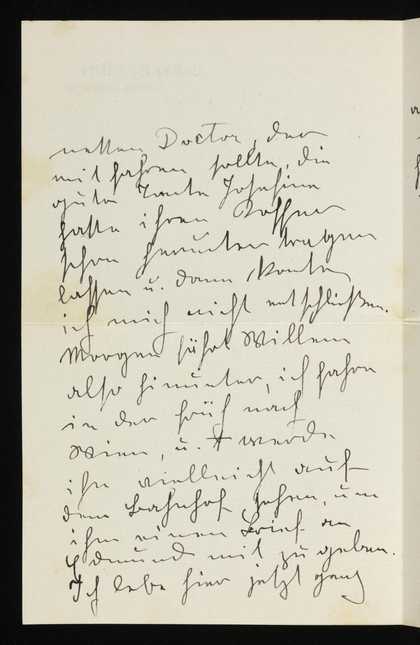 netten Doctor, der
mitfahren sollte, die
gute Tante Josefine
hatte ihren Koffer
schon hinuntertragen
lassen u. dann konnte
ich mich nicht entschließen.
Morgen fährt Willem
also hinunter, ich fahre
in der früh nach
Wien, u. werde
ihn vielleicht auf
dem Bahnhof sehen, um
ihm einen Brief an
Edmund mit zu geben.
Ich lebe hier jetzt ganz